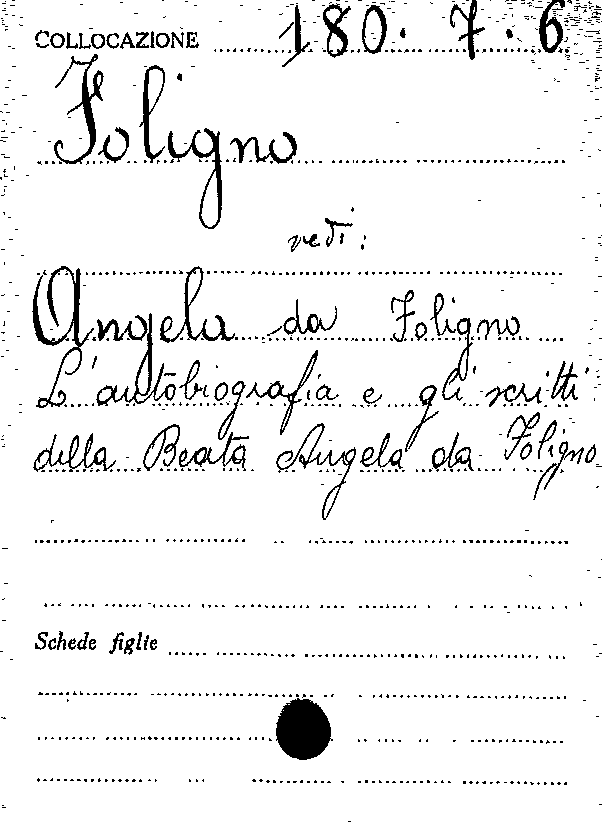 COLLOCAZIONE 180. 7. 6
Foligno
vedi:
Angela da Foligno
L'autobiografia e gli scritti
della Beata Angela da Foligno
Schede figlie